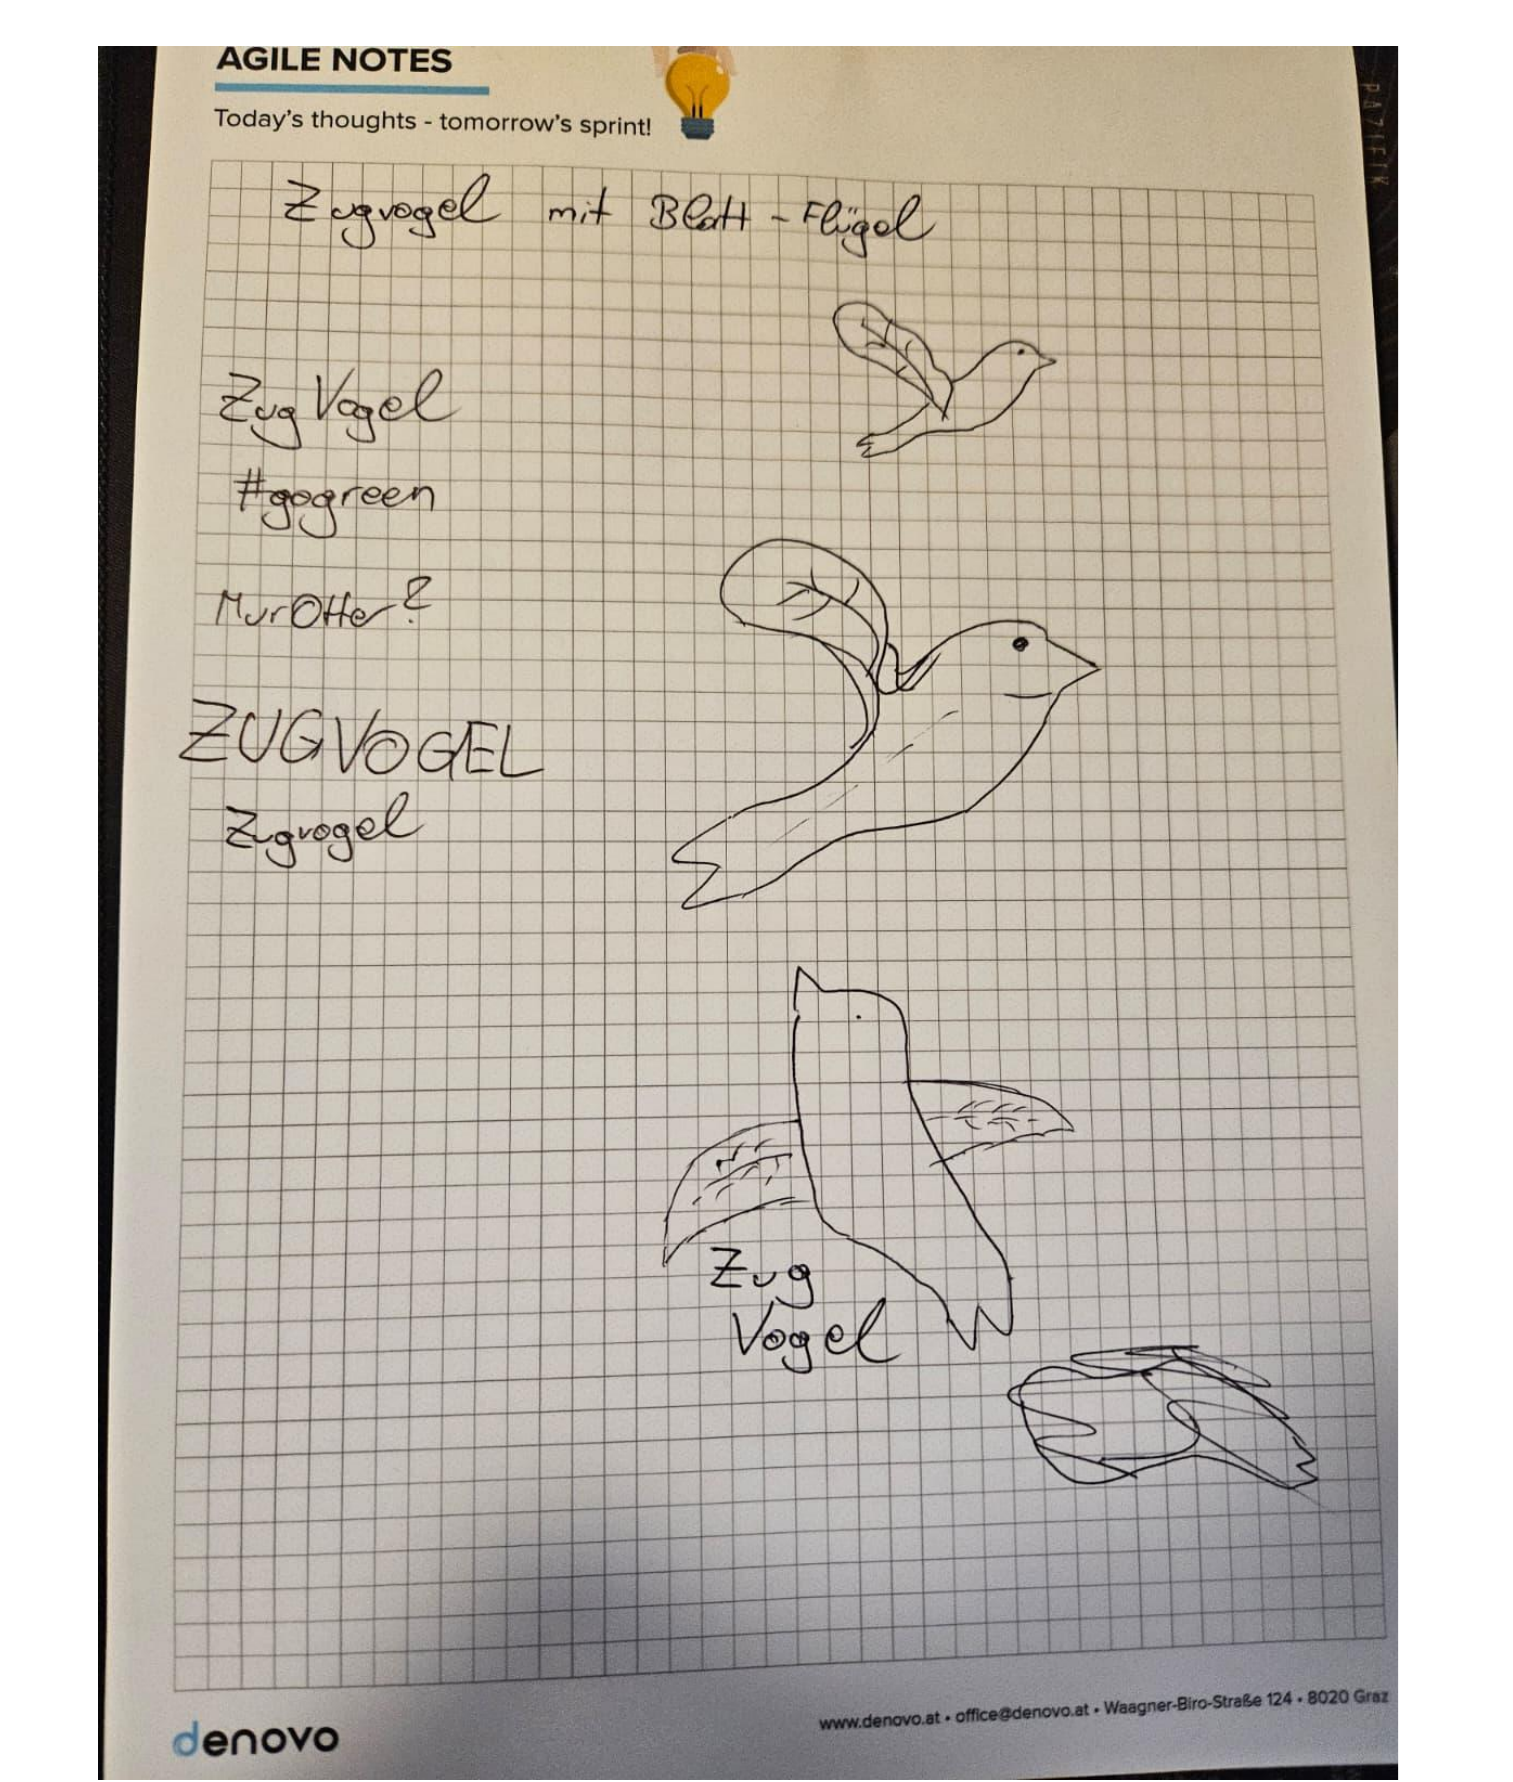 AGILE NOTES
Today's thoughts - tomorrow's sprint!
PAZIFIK
Zugvogel mit Blatt-Flügel
ZugVogel
#gogreen
MurOtter?
ZUGVOGEL
Zugvogel
Zug
Vogel
denovo
www.denovo.at • office@denovo.at • Waagner-Biro-Straße 124 • 8020 Graz